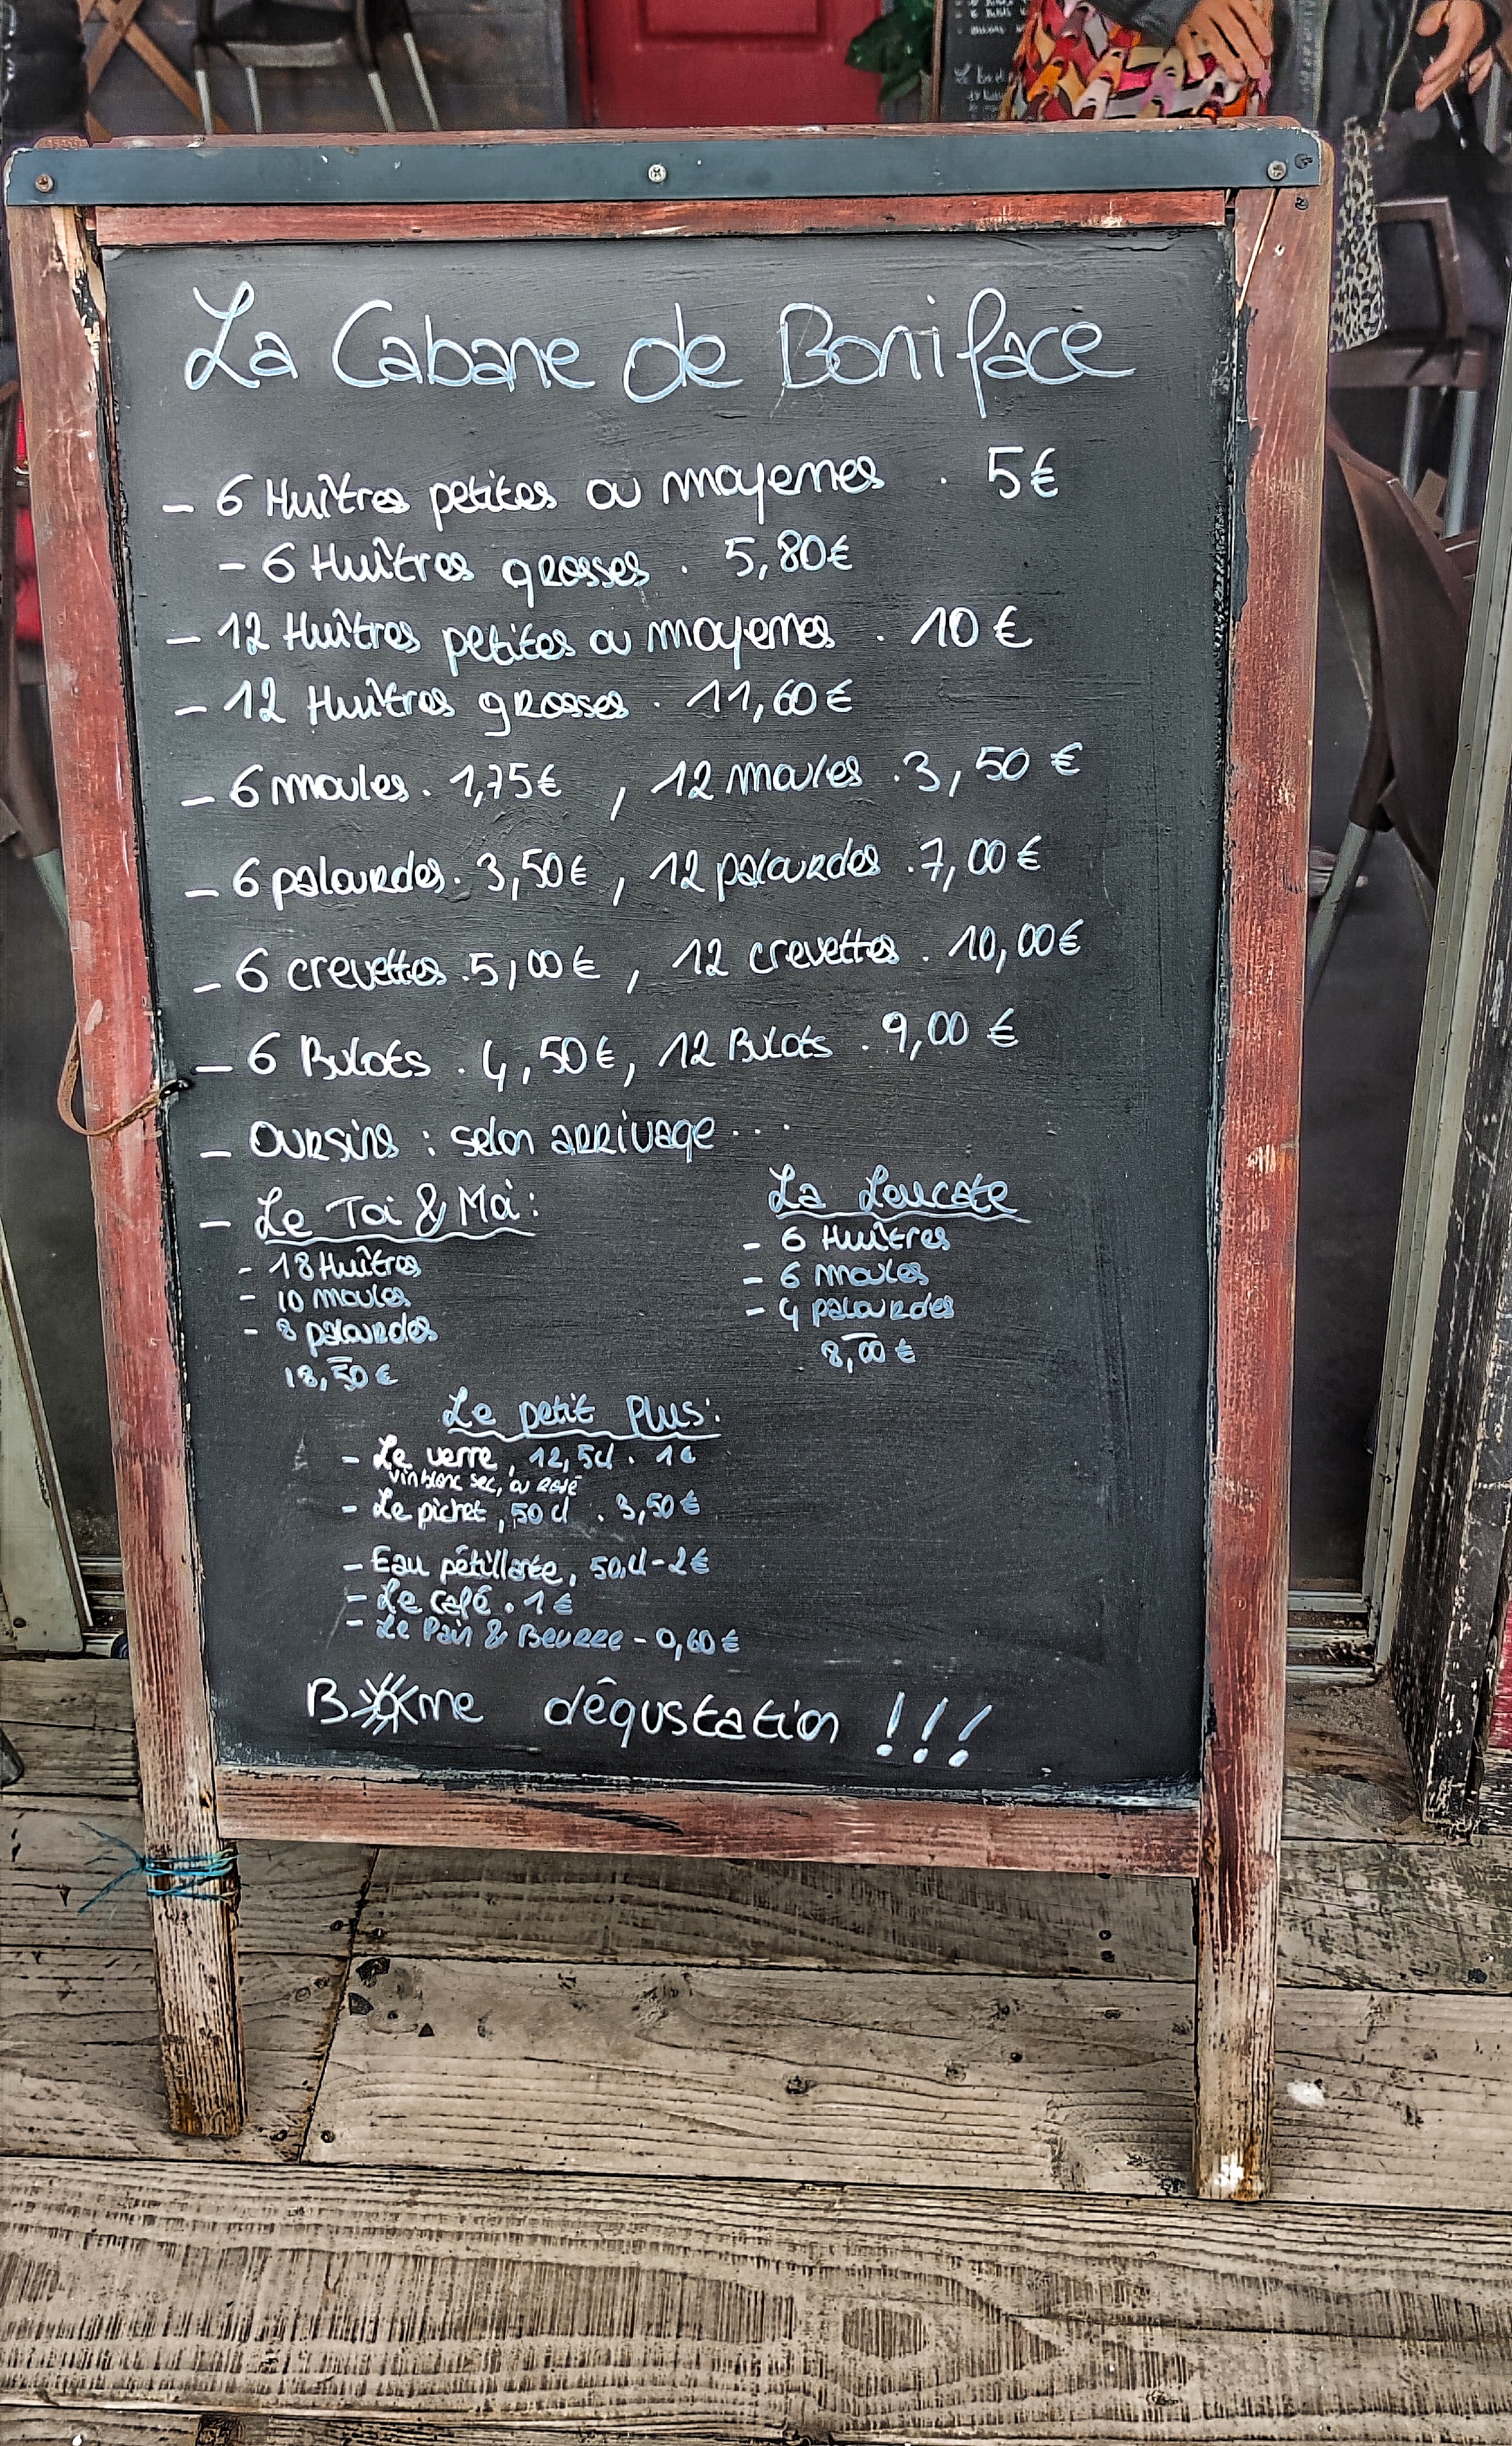 La Cabane de Boniface
- 6 Huîtres petites ou moyennes . 5€
- 6 Huîtres grosses . 5,80€
- 12 Huîtres petites ou moyennes . 10€
- 12 Huîtres grosses . 11,60€
- 6 moules . 1,75€ , 12 moules . 3,50 €
- 6 palourdes . 3,50€ , 12 palourdes . 7,00 €
- 6 crevettes . 5,00€ , 12 crevettes . 10,00€
- 6 Bulots . 4,50€, 12 Bulots . 9,00 €
- OURSINS : selon ARRIVAGE ...
- Le Toi & Moi :
- 18 Huîtres
- 10 moules
- 8 palourdes
18,50 €
La Leucate
- 6 Huîtres
- 6 moules
- 4 palourdes
8,00 €
Le petit Plus :
- Le verre, 12,5cl . 1€
vin blanc sec, ou rosé
- Le pichet, 50 cl . 3,50 €
- Eau pétillante, 50cl - 2€
- Le café . 1 €
- Le Pain & Beurre - 0,60 €
Bonne dégustation !!!